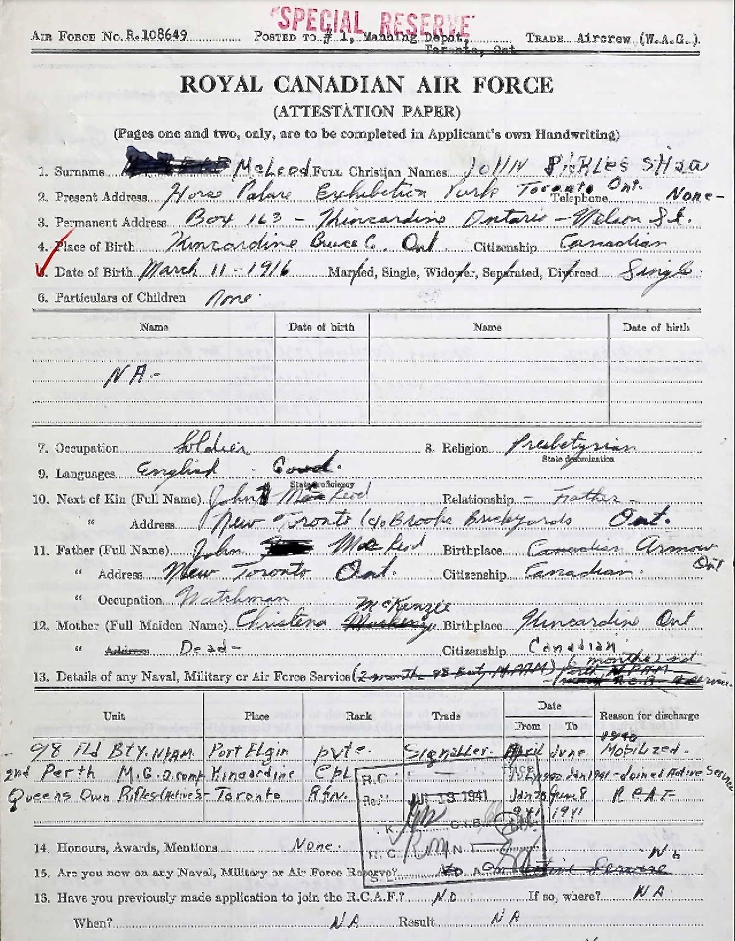 "SPECIAL RESERVE"
AIR FORCE No. R.108649 POSTED TO # 1, Manning Depot, TRADE Aircrew (W.A.G.)
Toronto, Ont
ROYAL CANADIAN AIR FORCE
(ATTESTATION PAPER)
(Pages one and two, only, are to be completed in Applicant's own Handwriting)
1. Surname McLeod Full Christian Names JOHN PIRKLES SHAW
2. Present Address Horse Palace Exhibition Park Toronto Ont. Telephone None-
3. Permanent Address Box 163 - Kincardine Ontario - Nelson St.
4. Place of Birth Kincardine Bruce C. Ont Citizenship Canadian
5. Date of Birth March 11-1916 Married, Single, Widower, Separated, Divorced Single
6. Particulars of Children None.
Name Date of birth Name Date of birth
NA-
7. Occupation Soldier 8. Religion Presbetyrian
State denomination
9. Languages English Good.
State proficiency
10. Next of Kin (Full Name) John MacLeod Relationship - Father -
" Address New Toronto c/o Brooks Brickyards Ont.
11. Father (Full Name) John MacLeod Birthplace Canadian Armow Ont
" Address New Toronto Ont. Citizenship Canadian.
" Occupation Watchman
McKenzie
12. Mother (Full Maiden Name) Christena Birthplace Kincardine Ont
" Address Dead- Citizenship Canadian
13. Details of any Naval, Military or Air Force Service (2 month 98 Bty. NPAM)
Unit Place Rank Trade Date From To Reason for discharge
98 Fld Bty. NPAM. Port Elgin pvte. Signaller. April June 1940 Mobilized.
2nd Perth M.G. D. Comp Kincardine Cpl - Jan 1941 - Joined Active Service
Queens Own Rifles (Active) - Toronto Rfn. Jan 20 June 8 RCAF
1941 1941
R.C.
JUN 13 1941
14. Honours, Awards, Mentions None.
15. Are you now on any Naval, Military or Air Force Reserve? No
16. Have you previously made application to join the R.C.A.F.? NO If so, where? NA
When? NA Result NA